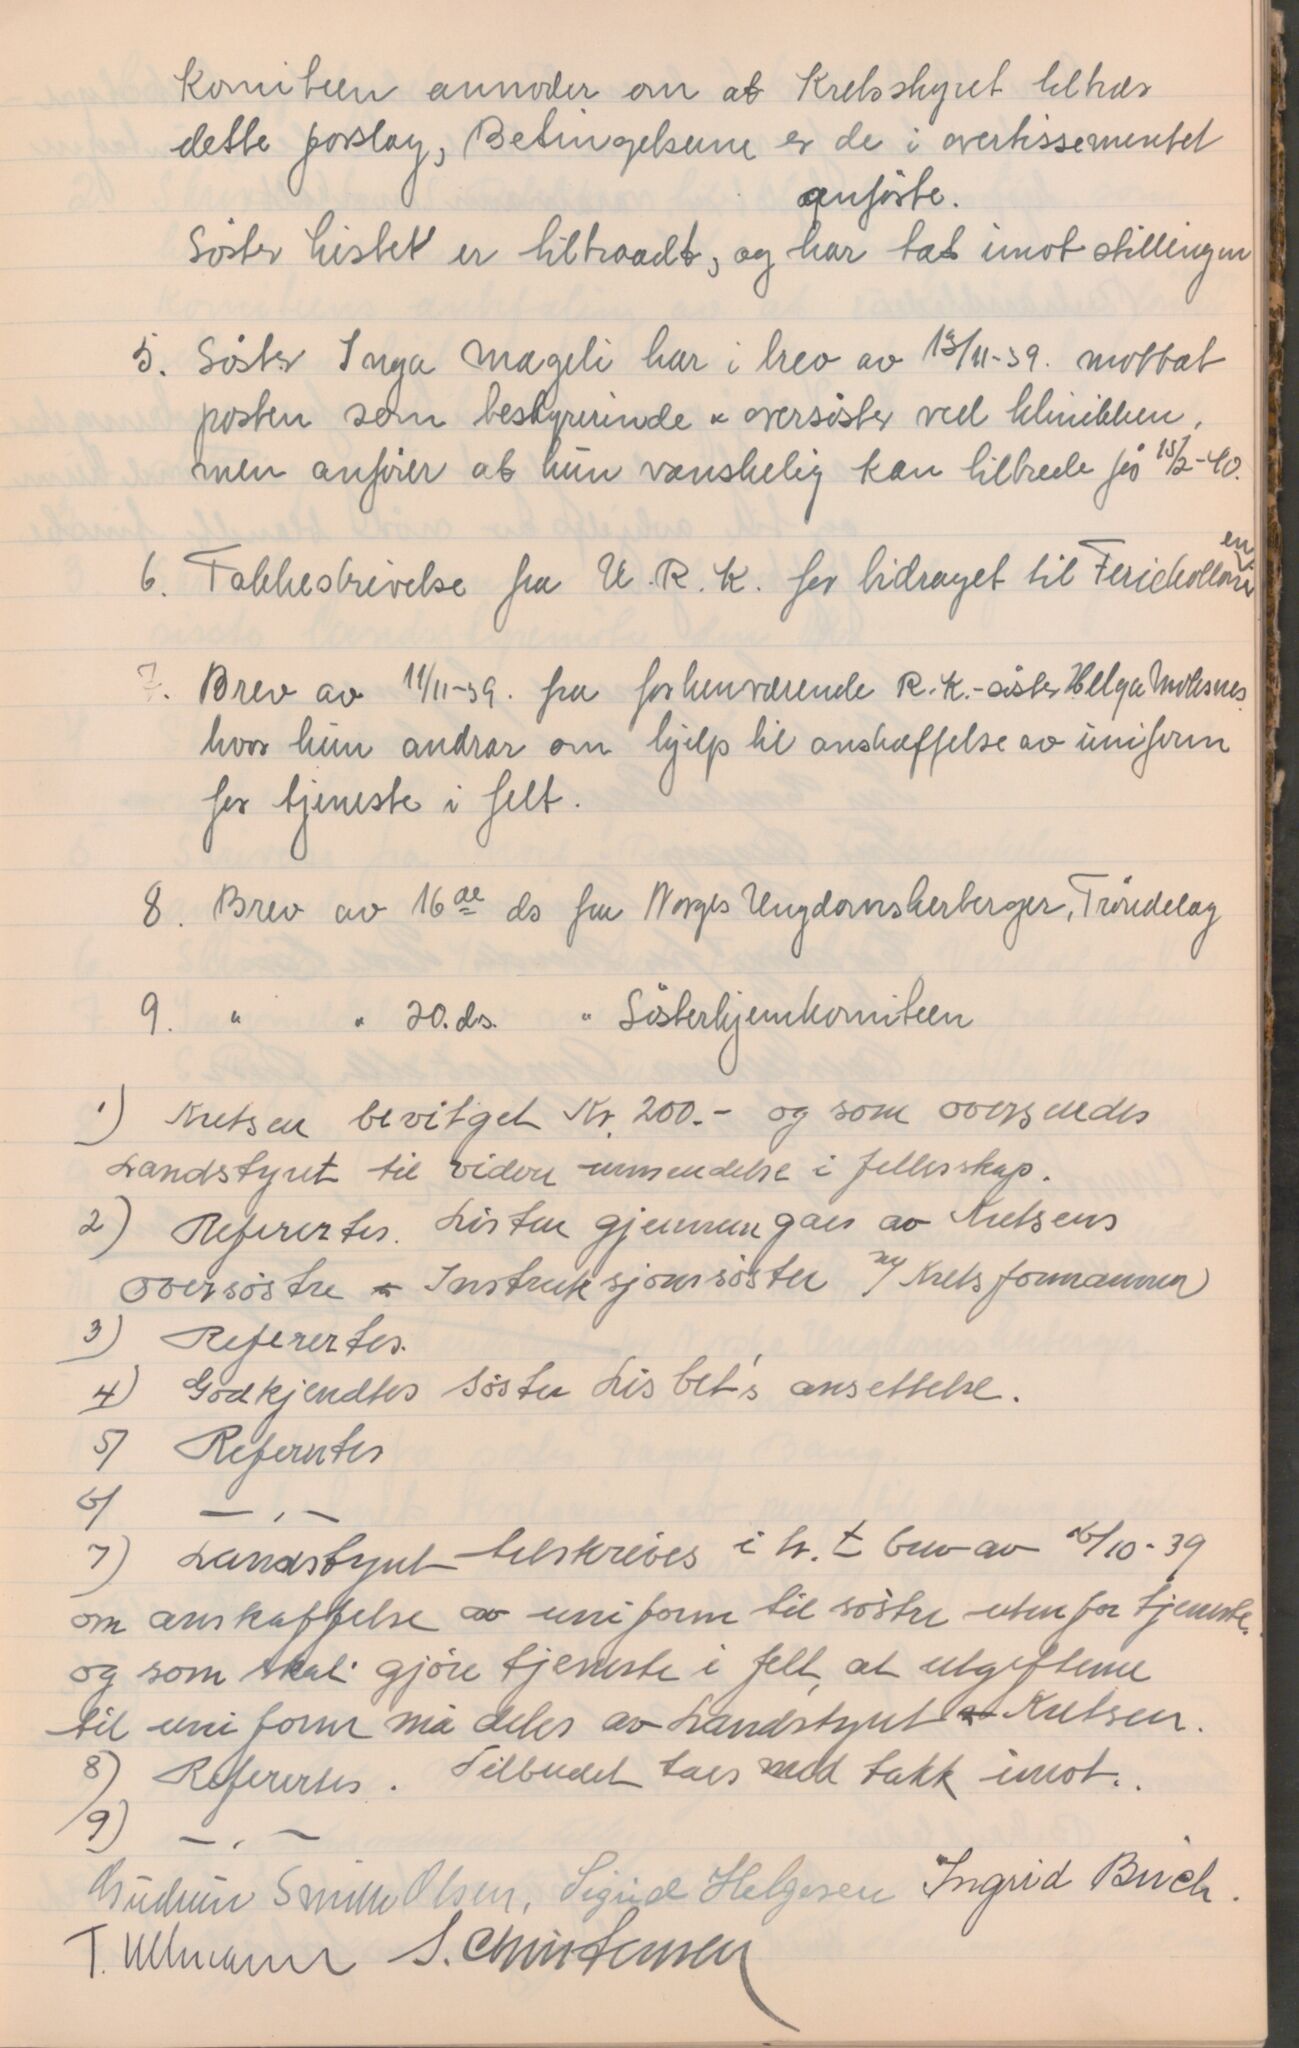 Komiteen anmoder om at Kretsstyret tiltrær
dette forslag, Betingelsene er de i avertissementet
anførte.
Søster Lisbet er tiltraadt, og har tat imot stillingen
5. Søster Inga Mageli har i brev av 13/11-39. mottat
posten som bestyrerinde & oversøster ved klinikken,
men anfører at hun vanskelig kan tiltrede før 15/2-40.
6. Takkeskrivelse fra U.R.K. for bidraget til Feriekolonien
7. Brev av 11/11-39. fra forhenværende R.K.-søster Helga Moksnes
hvor hun andrar om hjelp til anskaffelse av uniform
for tjeneste i felt.
8. Brev av 16de ds fra Norges Ungdomsherberger, Trøndelag
9. " " 20. ds. " Søsterhjemkomiteen
1) Kretsen bevilget Kr. 200.- og som oversendes
Landstyret til videre innsendelse i fellesskap.
2) Referertes. Listen gjennemgaes av Kretsens
oversøstre & Instruksjonssøster m/ Kretsformannen)
3) Referertes.
4) Godkjendtes Søster Lisbet's ansettelse.
5) Referertes
6) — , —
7) Landstyret tilskrives i h. t. brev av 26/10-39
om anskaffelse av uniform til søstre utenfor tjeneste.
og som skal gjøre tjeneste i felt, at utgiftene
til uniform må deles av Landstyret & Kretsen.
8) Referertes. Tilbudet taes med takk imot.
9) — . —
Gudrun Smith Olsen, Sigrid Helgesen Ingrid Birch.
T. Ullmann S. Christensen